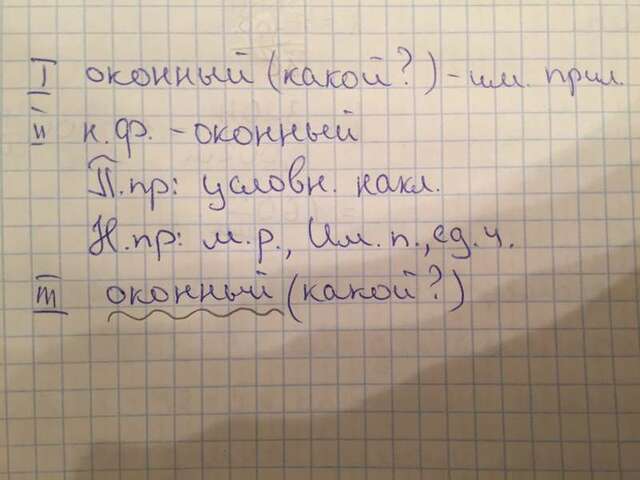 I оконный (какой?) - им. прил.
II н.ф. - оконный
П.пр: условн. накл.
Н.пр: м.р., Им.п., ед.ч.
III оконный (какой?)